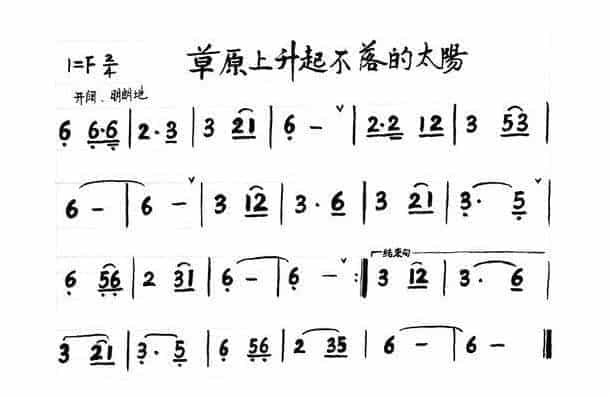 草原上升起不落的太陽
1=F 2/4
开阔、明朗地
6 6·6 | 2·3 | 3 21 | 6 – ∨ | 2·2 12 | 3 53 |
6 – | 6 – ∨ | 3 12 | 3·6 | 3 21 | 3· 5 ∨ |
6 56 | 2 31 | 6 – | 6 – ∨ :‖ 3 12 | 3· 6 |
结束句
3 21 | 3· 5 | 6 56 | 2 35 | 6 – | 6 – ‖